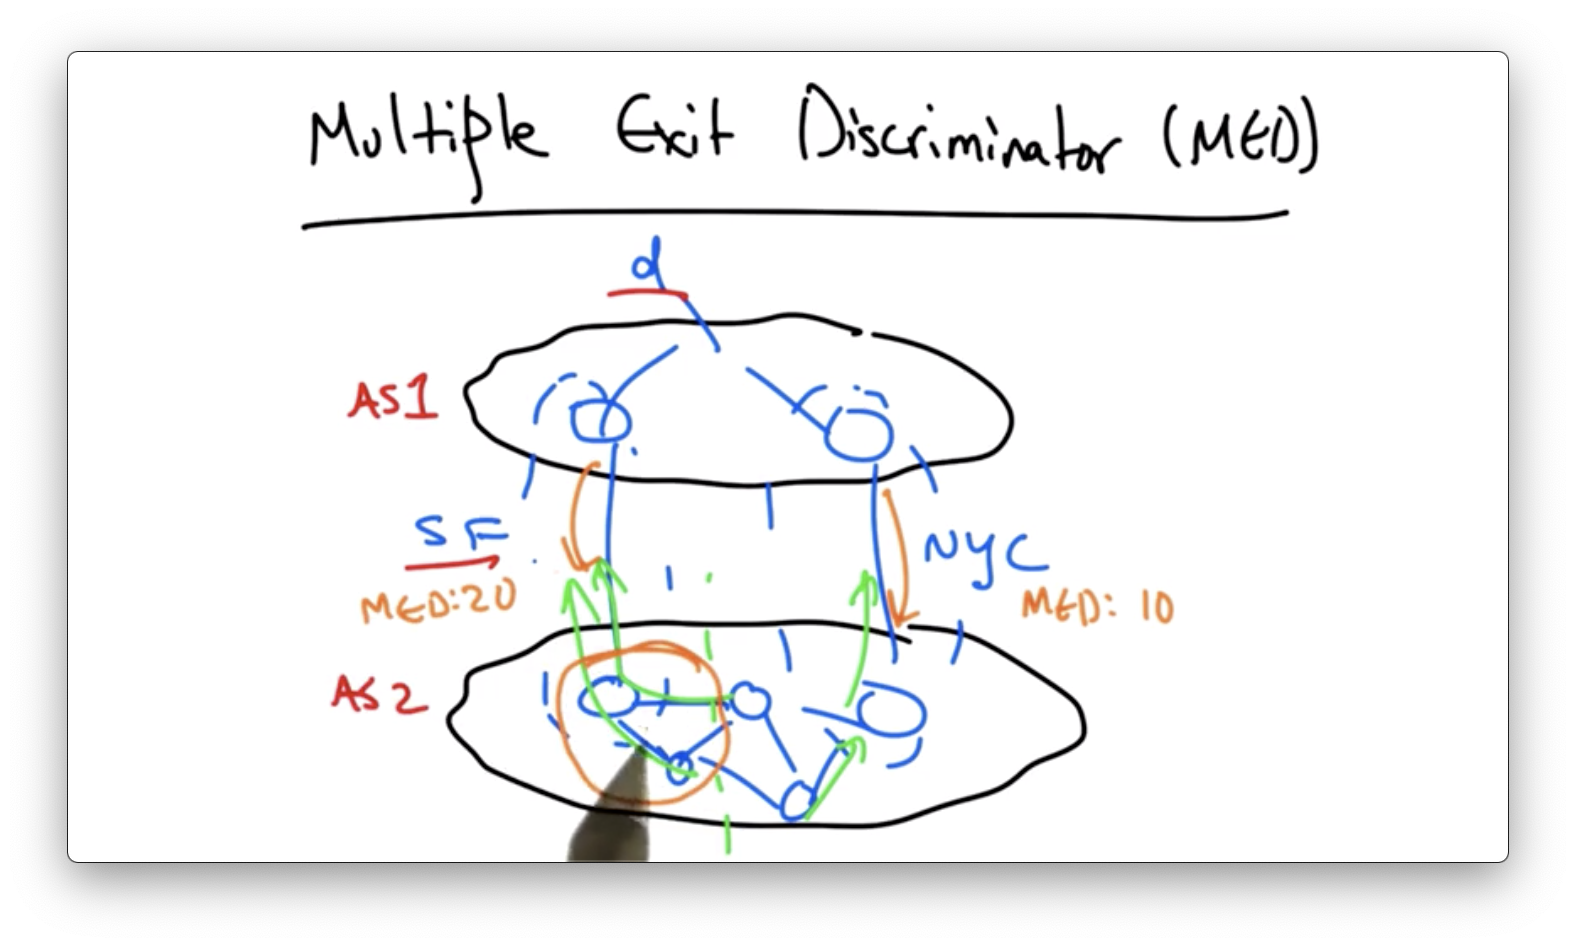 Multiple Exit Discriminator (MED)
d
AS1
SF
NYC
MED:20
MED: 10
AS2